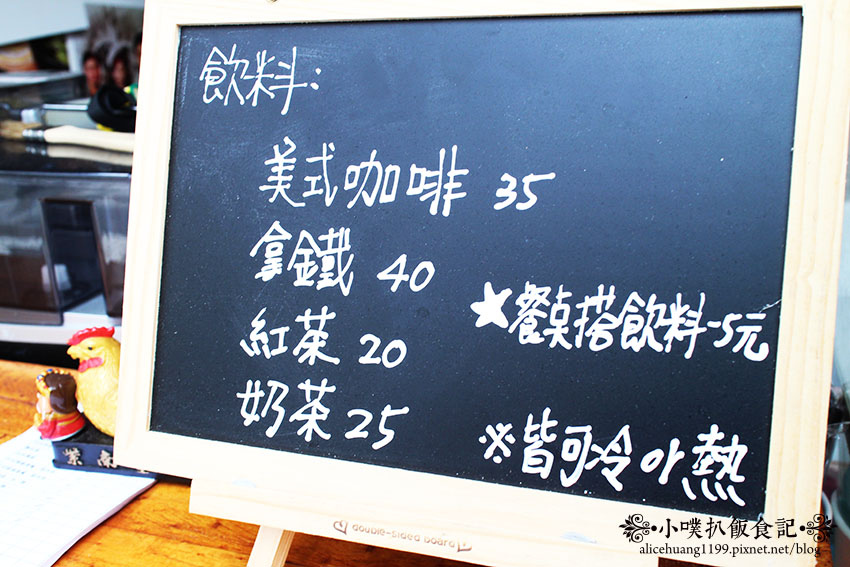 飲料:
美式咖啡 35
拿鐵 40
紅茶 20
奶茶 25
★餐桌搭飲料-5元
※皆可冷or熱
double-sided board
紫南
小噗扒飯食記
alicehuang1199.pixnet.net/blog